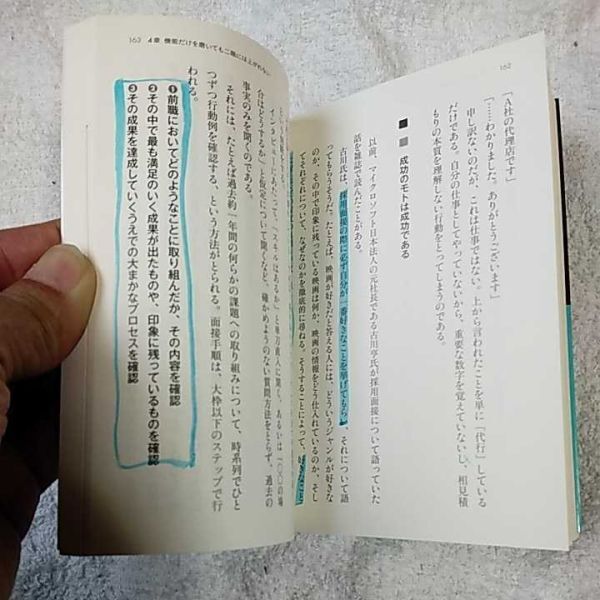 162
「A社の代理店です」
「……わかりました。ありがとうございます」
申し訳ないのだが、これは仕事ではない。上から言われたことを単に「代行」している
だけである。自分の仕事としてやっていないから、重要な数字を覚えていないし、相見積
もりの本質を理解しない行動をとってしまうのである。
成功のモトは成功である
以前、マイクロソフト日本法人の元社長である古川亨氏が採用面接について語っていた
話を雑誌で読んだことがある。
古川氏は、採用面接の際に必ず自分が一番好きなことを挙げてもらい、それについて語
ってもらうそうだ。たとえば、映画が好きだと答える人には、どういうジャンルが好きな
のか、その中で印象に残っている映画は何か、映画の情報をどう仕入れているのか、そし
てそれぞれについて、なぜなのかを徹底的に尋ねる。そうすることによって、好きなこと
163 4章 機能だけを磨いても二階には上がれない
インタビューにあたって、「スキルはあるか」と単刀直入に聞く、あるいは「〇〇の場
合はどうするか」と仮定について聞くなど、確かめようのない質問方法をとらず、過去の
事実のみを聞くのである。
それには、たとえば過去約一年間の何らかの課題への取り組みについて、時系列でひと
つずつ行動例を確認する、という方法がとられる。面接手順は、大枠以下のステップで行
われる。
❶前職においてどのようなことに取り組んだか、その内容を確認
❷その中で最も満足のいく成果が出たものや、印象に残っているものを確認
❸その成果を達成していくうえでの大まかなプロセスを確認